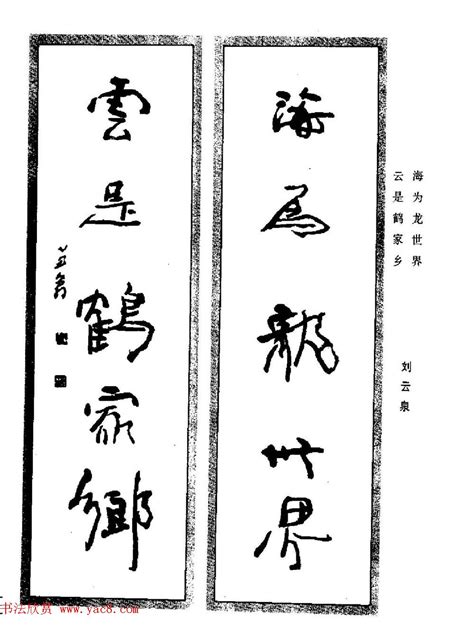 海为龙世界
云是鹤家乡
刘云泉
海為龍世界
雲是鶴家鄉
书法欣赏 www.yac8.com